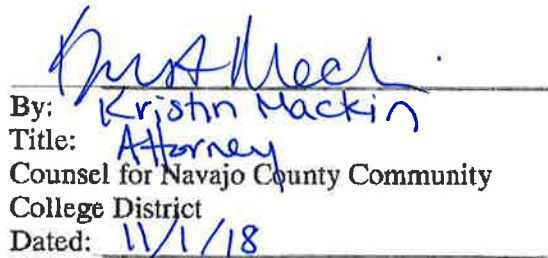 By: Kristin Mackin
Title: Attorney
Counsel for Navajo County Community
College District
Dated: 11/1/18